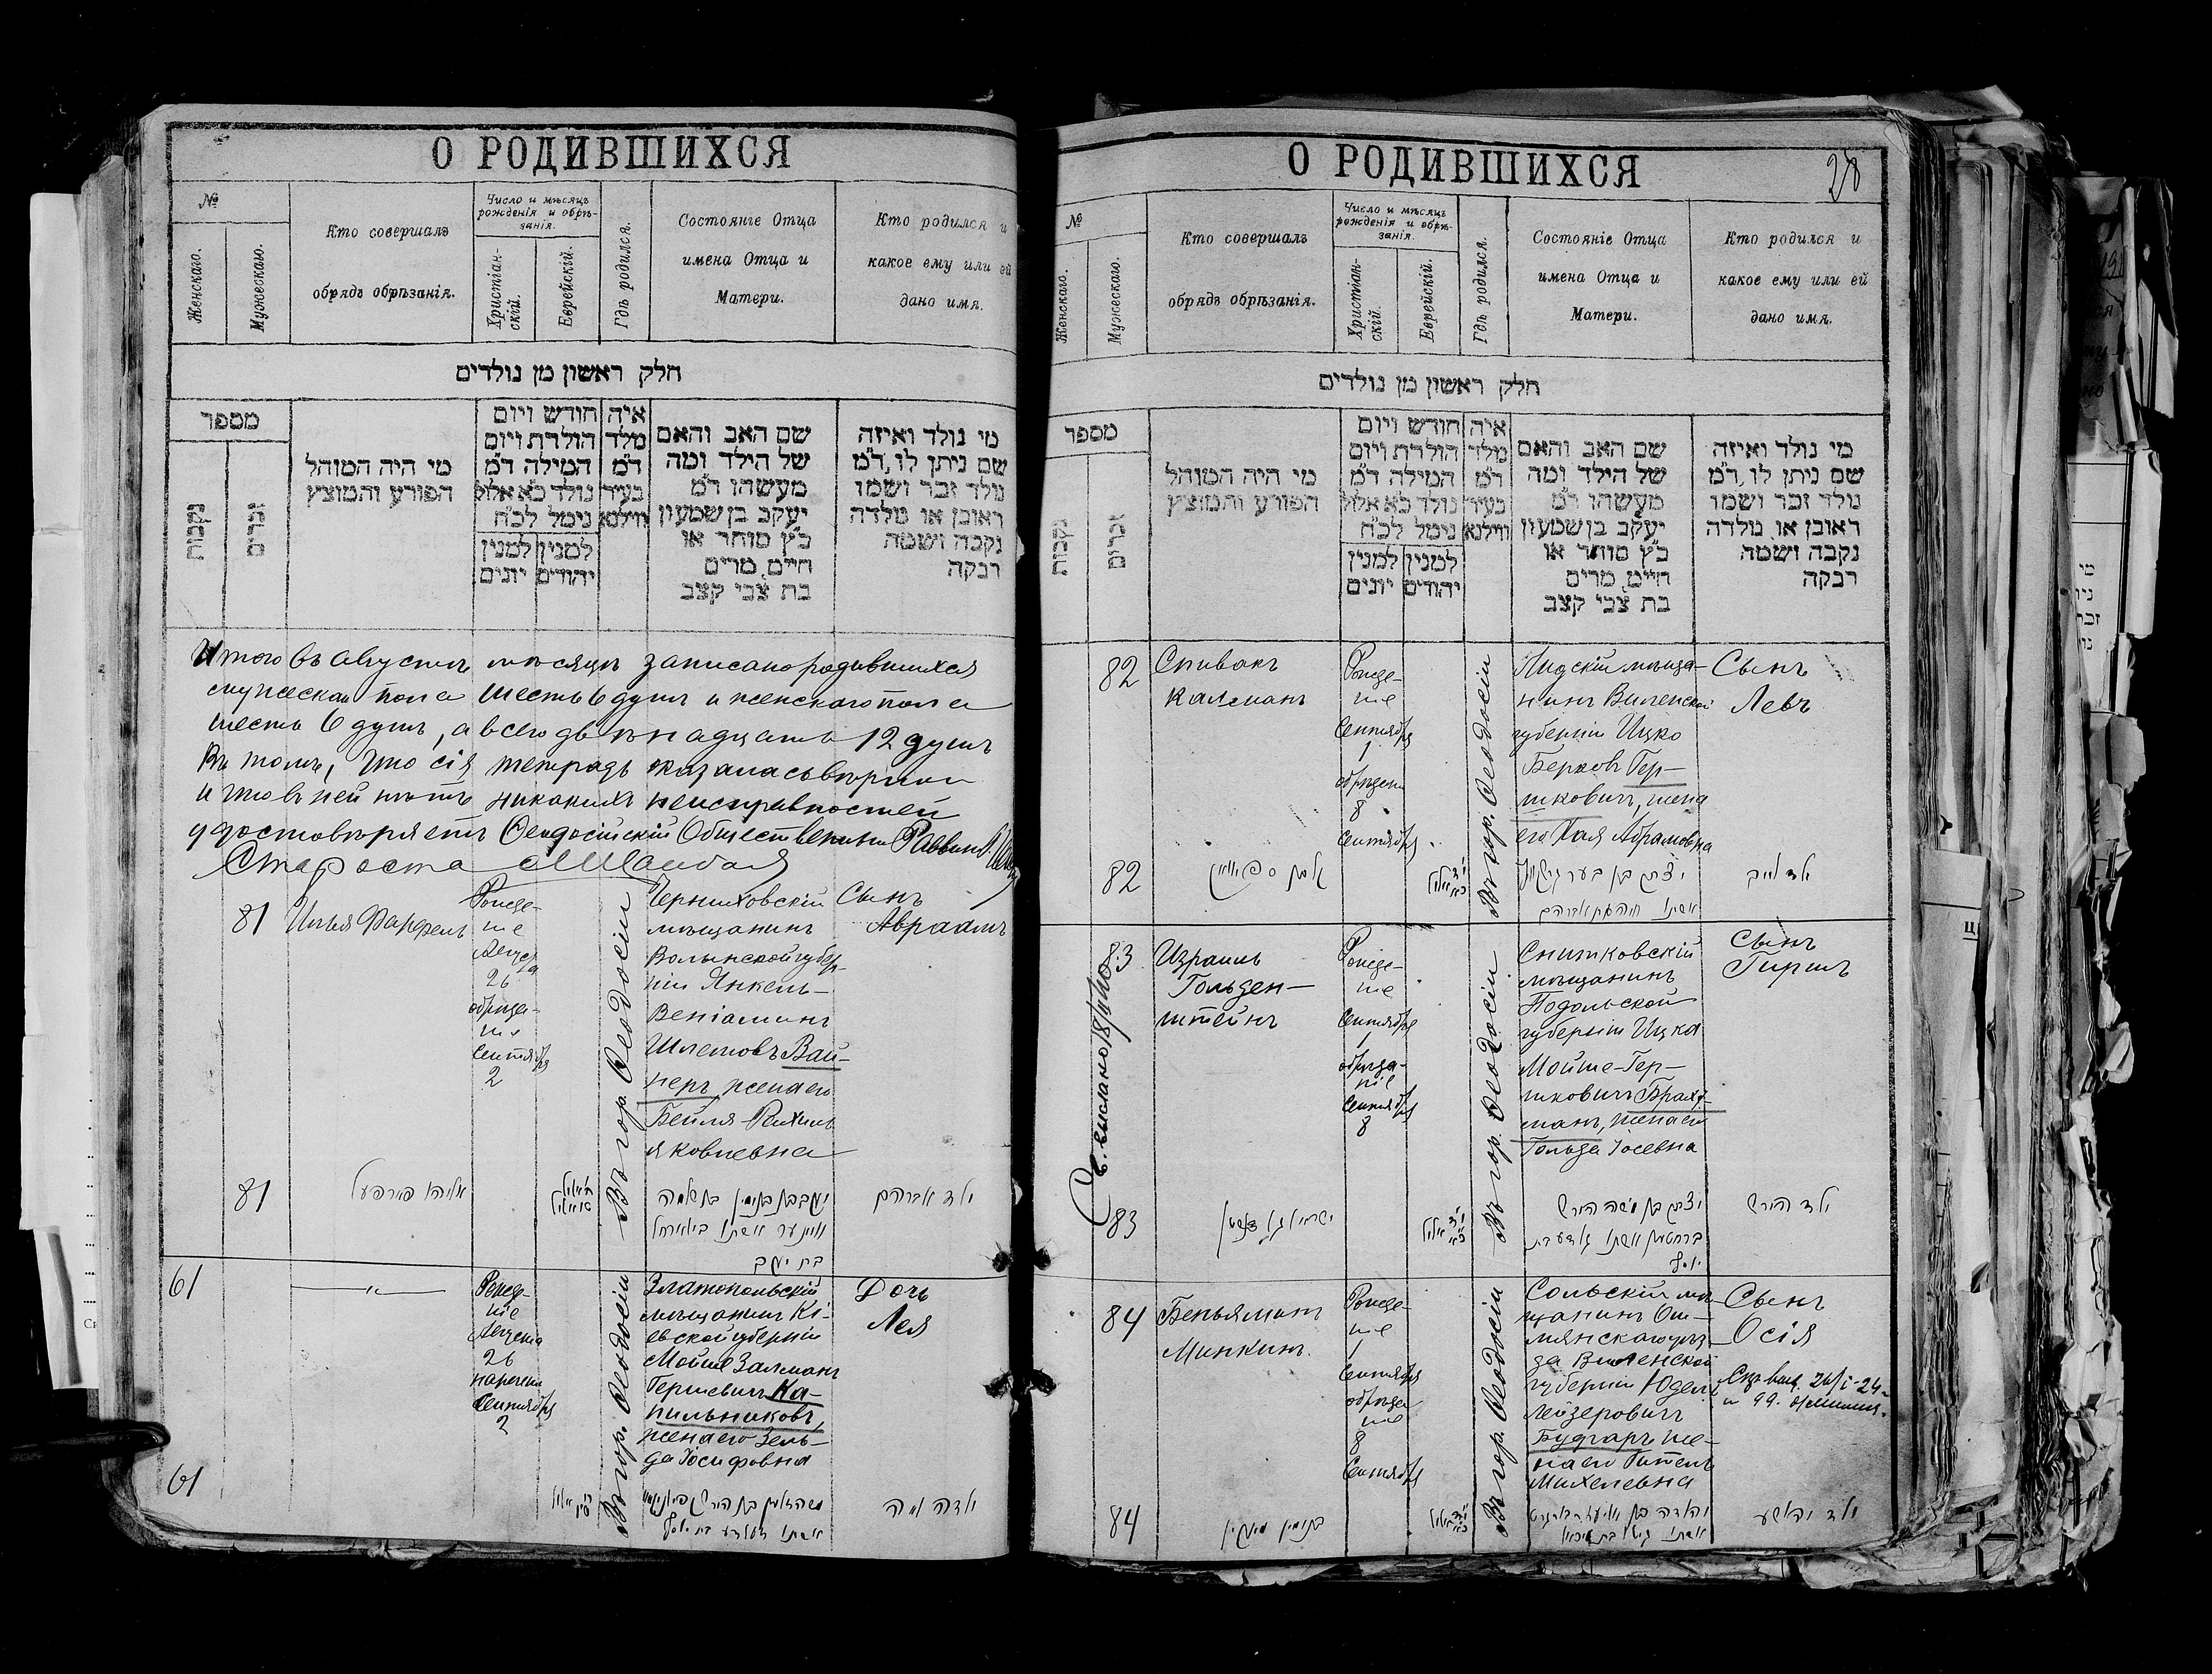 О РОДИВШИХСЯ
№
Женскаго.
Мужескаго.
Кто совершалъ
обрядъ обрѣзанія.
Число и мѣсяцъ
рожденія и обрѣ-
занія.
Христіан-
скій.
Еврейскій.
Гдѣ родился.
Состояніе Отца
имена Отца и
Матери.
Кто родился и
какое ему или ей
дано имя.
חלק ראשון מן נולדים
מספר
נקבות
זכרים
מי היה המוהל
הפורע והמוצץ
חודש ויום
הולדת ויום
המילה ד״מ
נולד כ״א אלול
נימל לכ״ח
למנין למנין
יהודים יונים
איה
מלד
ד״מ
בעיר
ווילנא
שם האב והאם
של הילד ומה
מעשהו ד״מ
יעקב בן שמעון
כ״ץ סוחר או
חיים, מרים
בת צבי קצב
מי נולד ואיזה
שם ניתן לו, ד״מ
נולד זכר ושמו
ראובן או נולדה
נקבה ושמה
רבקה
Итого въ августѣ мѣсяцѣ записано родившихся
мужескаго пола шесть 6 душъ и женскаго пола
шесть 6 душъ, а всего двѣнадцать 12 душъ
Въ томъ, что сія тетрадь оказалась вѣрною
и что въ ней нѣтъ никакихъ неисправностей
удостовѣряетъ Ѳеодосійскій Общественный Раввинъ
Староста
81
Илья Фарфель
Рожде-
ніе
Августа
26
обрѣза-
ніе
Сентября
2
Въ гор. Ѳеодосіи
Черниховскій
мѣщанинъ
Волынской губер-
ніи Янкель-
Веніаминъ
Шлемовъ Вай-
неръ, жена его
Бейля-Рохиль
Яковлевна
Сынъ
Авраамъ
81
אליהו פארפעל
יעקב בנימין בן שלמה
וויינער אשתו ביילא רחל
בת יעקב
ילד אברהם
61
Рожде-
ніе
Августа
26
наречені
Сентября
2
Въ гор. Ѳеодосіи
Златопольскій
мѣщанинъ Кі-
евской губерніи
Мойше Залманъ
Гершевичъ Ка-
пильниковъ,
жена его Зель-
да Іосифовна
Дочь
Лея
61
אשתו זעלדע בת יוסף
ילדה לאה
О РОДИВШИХСЯ
28
№
Женскаго.
Мужескаго.
Кто совершалъ
обрядъ обрѣзанія.
Число и мѣсяцъ
рожденія и обрѣ-
занія.
Христіан-
скій.
Еврейскій.
Гдѣ родился.
Состояніе Отца
имена Отца и
Матери.
Кто родился и
какое ему или ей
дано имя.
חלק ראשון מן נולדים
מספר
נקבות
זכרים
מי היה המוהל
הפורע והמוצץ
חודש ויום
הולדת ויום
המילה ד״מ
נולד כ״א אלול
נימל לכ״ח
למנין למנין
יהודים יונים
איה
מלד
ד״מ
בעיר
ווילנא
שם האב והאם
של הילד ומה
מעשהו ד״מ
יעקב בן שמעון
כ״ץ סוחר או
חיים, מרים
בת צבי קצב
מי נולד ואיזה
שם ניתן לו, ד״מ
נולד זכר ושמו
ראובן או נולדה
נקבה ושמה
רבקה
82
Спивакъ
Калманъ
Рожде-
ніе
Сентября
1
обрѣзані
8
Сентября
Въ гор. Ѳеодосіи
Лидскій мѣща-
нинъ Виленской
губерніи Ицко
Берковъ Гер-
шковичъ, жена
его Хая Абрамовна
Сынъ
Левъ
82
קלמן ספיוואק
אשתו חיה בת אברהם
ילד לייב
83
Израиль
Гольден-
штейнъ
Рожде-
ніе
Сентября
1
обрѣза-
ніе
Сентября
8
Въ гор. Ѳеодосіи
Снитковскій
мѣщанинъ
Подольской
губерніи Ицка
Мойше-Гер-
шковичъ Брахт-
манъ, жена его
Гольда Іосевна
Сынъ
Гиршъ
83
יצחק בן משה הירש
ברחטמאן אשתו גאלדע בת
יוסף
ילד הירש
84
Беньяминъ
Минкинъ.
Рожде-
ніе
1
Сентября
обрѣза
ніе
8
Сентября
Въ гор. Ѳеодосіи
Сольскій мѣ-
щанинъ Ош-
мянскаго уѣз-
да Виленской
губерніи Юдель
Лейзеровичъ
Будгаръ же-
на его Гитель
Михелевна
Сынъ
Осія
84
בנימין מינקין
ילד יהושע